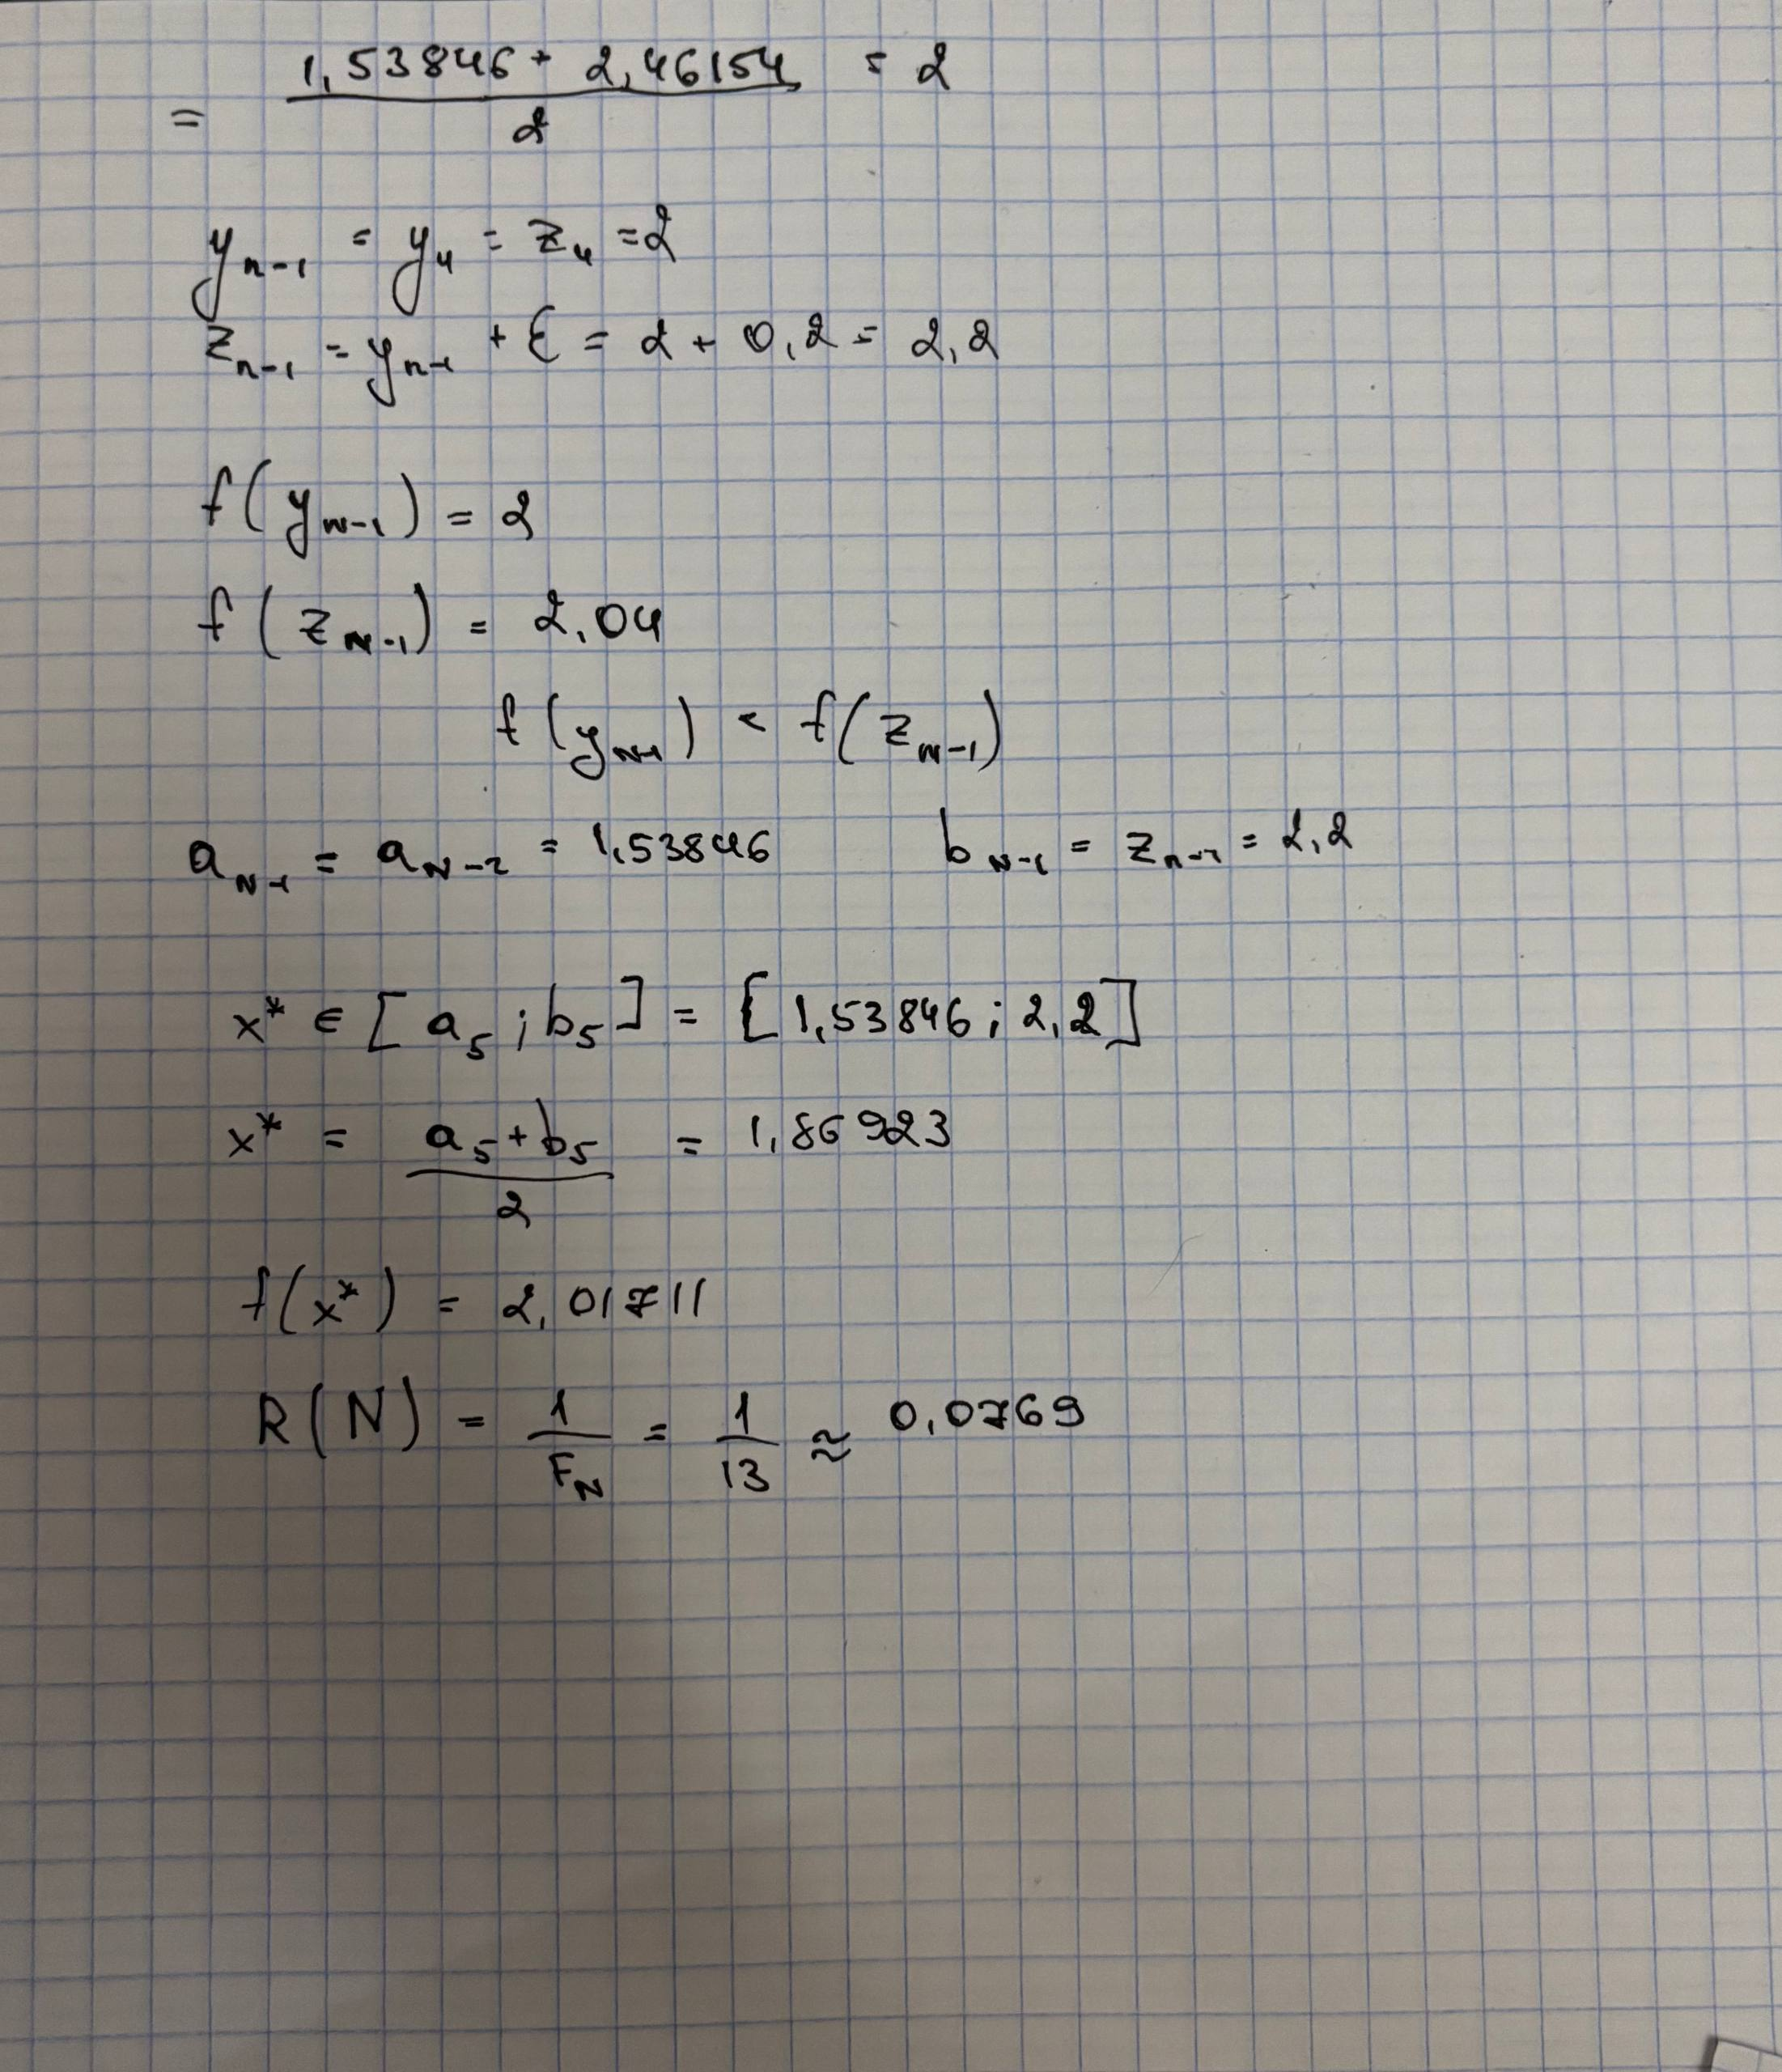 = (1,53846 + 2,46154)/2 = 2
y_{n-1} = y_4 = z_4 = 2
z_{n-1} = y_{n-1} + ε = 2 + 0,2 = 2,2
f(y_{N-1}) = 2
f(z_{N-1}) = 2,04
f(y_{N-1}) < f(z_{N-1})
a_{N-1} = a_{N-2} = 1,53846 b_{N-1} = z_{n-1} = 2,2
x* ∈ [a_5; b_5] = [1,53846; 2,2]
x* = (a_5 + b_5)/2 = 1,86923
f(x*) = 2,01711
R(N) = 1/F_N = 1/13 ≈ 0,0769